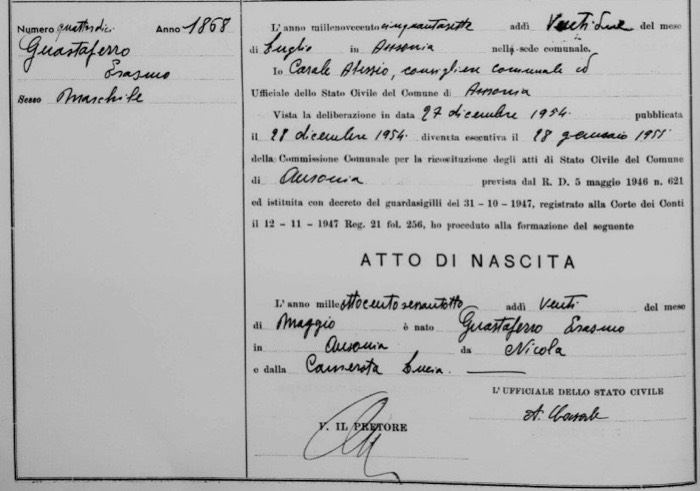 Numero quattordici Anno 1868
Guastaferro
Erasmo
Sesso Maschile
L'anno millenovecento cinquantasette addì Ventidue del mese
di Luglio in Ausonia nella sede comunale.
Io Casale Alessio, consigliere comunale ed
Ufficiale dello Stato Civile del Comune di Ausonia
Vista la deliberazione in data 27 dicembre 1954 pubblicata
il 28 dicembre 1954 diventa esecutiva il 28 gennaio 1955
della Commissione Comunale per la ricostituzione degli atti di Stato Civile del Comune
di Ausonia prevista dal R. D. 5 maggio 1946 n. 621
ed istituita con decreto del guardasigilli del 31 - 10 - 1947, registrato alla Corte dei Conti
il 12 - 11 - 1947 Reg. 21 fol. 256, ho proceduto alla formazione del seguente
ATTO DI NASCITA
L'anno mille ottocentosessantotto addì Venti del mese
di Maggio è nato Guastaferro Erasmo
in Ausonia da Nicola
e dalla Lucia.
L'UFFICIALE DELLO STATO CIVILE
A. Casale
V. IL PRETORE